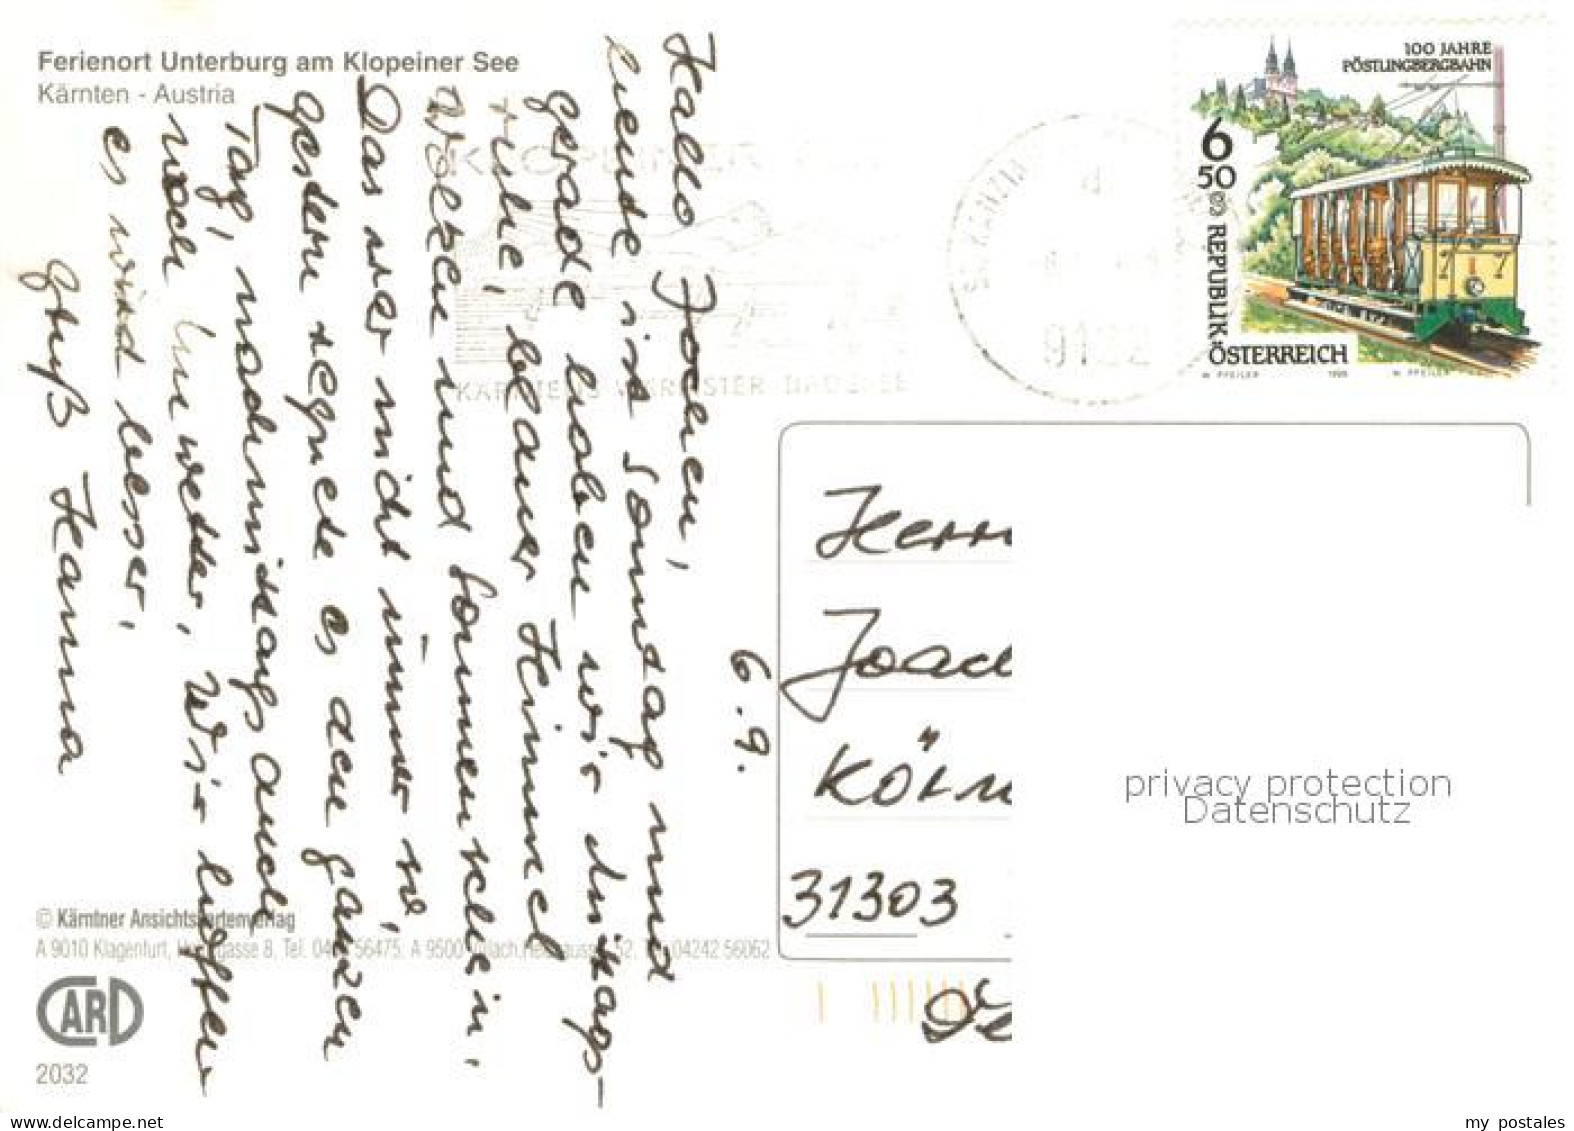 Ferienort Unterburg am Klopeiner See
Kärnten - Austria
6.9.
Hallo Jochen,
heute ist Sonntag und
gerade haben wir Mittags-
ruhe, blauer Himmel
Wolken und Sonnenschein,
Das war nicht immer so,
gestern regnete es den ganzen
Tag, nachmittags auch
noch Unwetter, Wir hoffen
es wird besser,
Gruß Hanna
100 JAHRE
PÖSTLINGBERGBAHN
6
50
REPUBLIK
ÖSTERREICH
W. PFEILER 1998
7 7
KLOPEINER
KÄRNTENS WÄRMSTER BADESEE
ST. KANZIAN
9122
Herrn
Joac
31303
privacy protection
Datenschutz
© Kärntner Ansichtskartenverlag
A 9010 Klagenfurt, gasse 8, Tel. 56475, A 9500 Villach, 52, 04242 56062
CARD
2032
my postales
www.delcampe.net